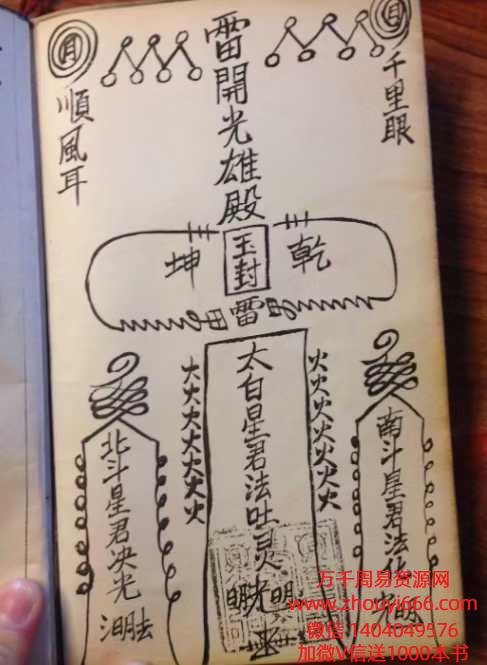 月
日
順風耳
千里眼
雷開光雄殿
坤
玉封
乾
雷
火火火火火火火火
太白星君法吐灵
光明
火火火火火火火火
北斗星君決光
法明
南斗星君法
光明
万千周易资源网
www.zhouyi666.com
微信:1404049576
加微V信送1000本书